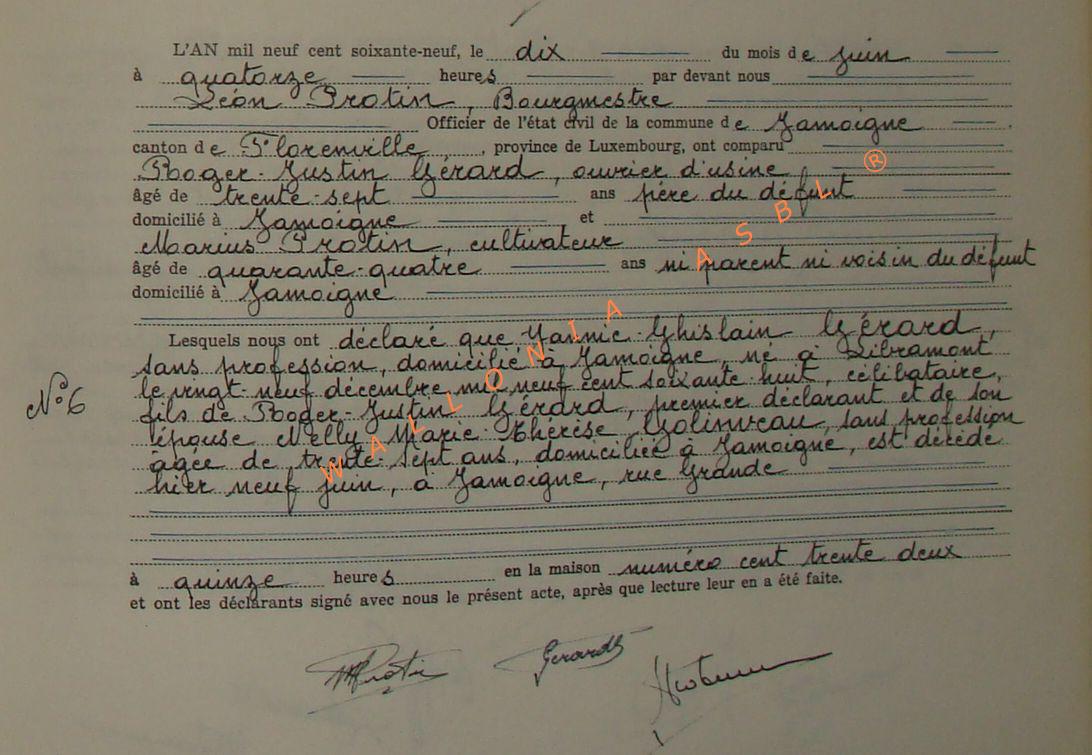 L'AN mil neuf cent soixante-neuf, le dix du mois de juin
à quatorze heures par devant nous
Léon Protin, Bourgmestre
Officier de l'état civil de la commune de Jamoigne
canton de Florenville, province de Luxembourg, ont comparu
Roger-Justin Gérard, ouvrier d'usine
âgé de trente-sept ans père du défunt
domicilié à Jamoigne et
Marius Protin, cultivateur
âgé de quarante-quatre ans ni parent ni voisin du défunt
domicilié à Jamoigne
Lesquels nous ont déclaré que Yannic Ghislain Gérard,
sans profession, domicilié à Jamoigne, né à Libramont
le vingt-neuf décembre mil neuf cent soixante-huit, célibataire,
N° 6
fils de Roger-Justin Gérard, premier déclarant et de son
épouse Nelly-Marie-Thérèse Golinveau, sans profession
âgée de trente-sept ans, domiciliée à Jamoigne, est décédé
hier neuf juin, à Jamoigne, rue Grande
à quinze heures en la maison numéro cent trente deux
et ont les déclarants signé avec nous le présent acte, après que lecture leur en a été faite.
MProtin Gerard
WALLONIA ASBL ®